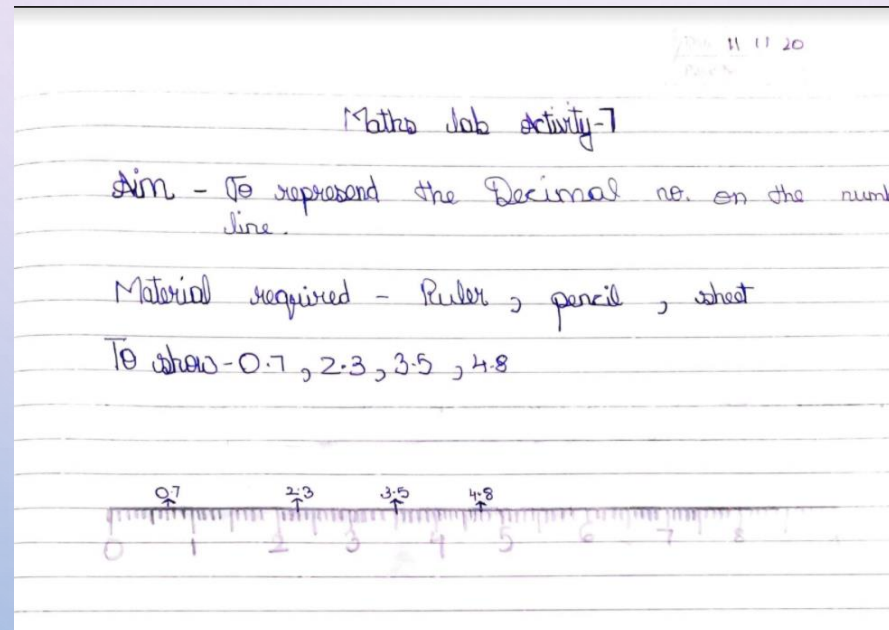 11 11 20
Maths Lab Activity-7
Aim - To represend the Decimal no. on the numb
line.
Material required - Ruler, pencil, sheet
To show - 0.7, 2.3, 3.5, 4.8
0.7 2.3 3.5 4.8
0 1 2 3 4 5 6 7 8